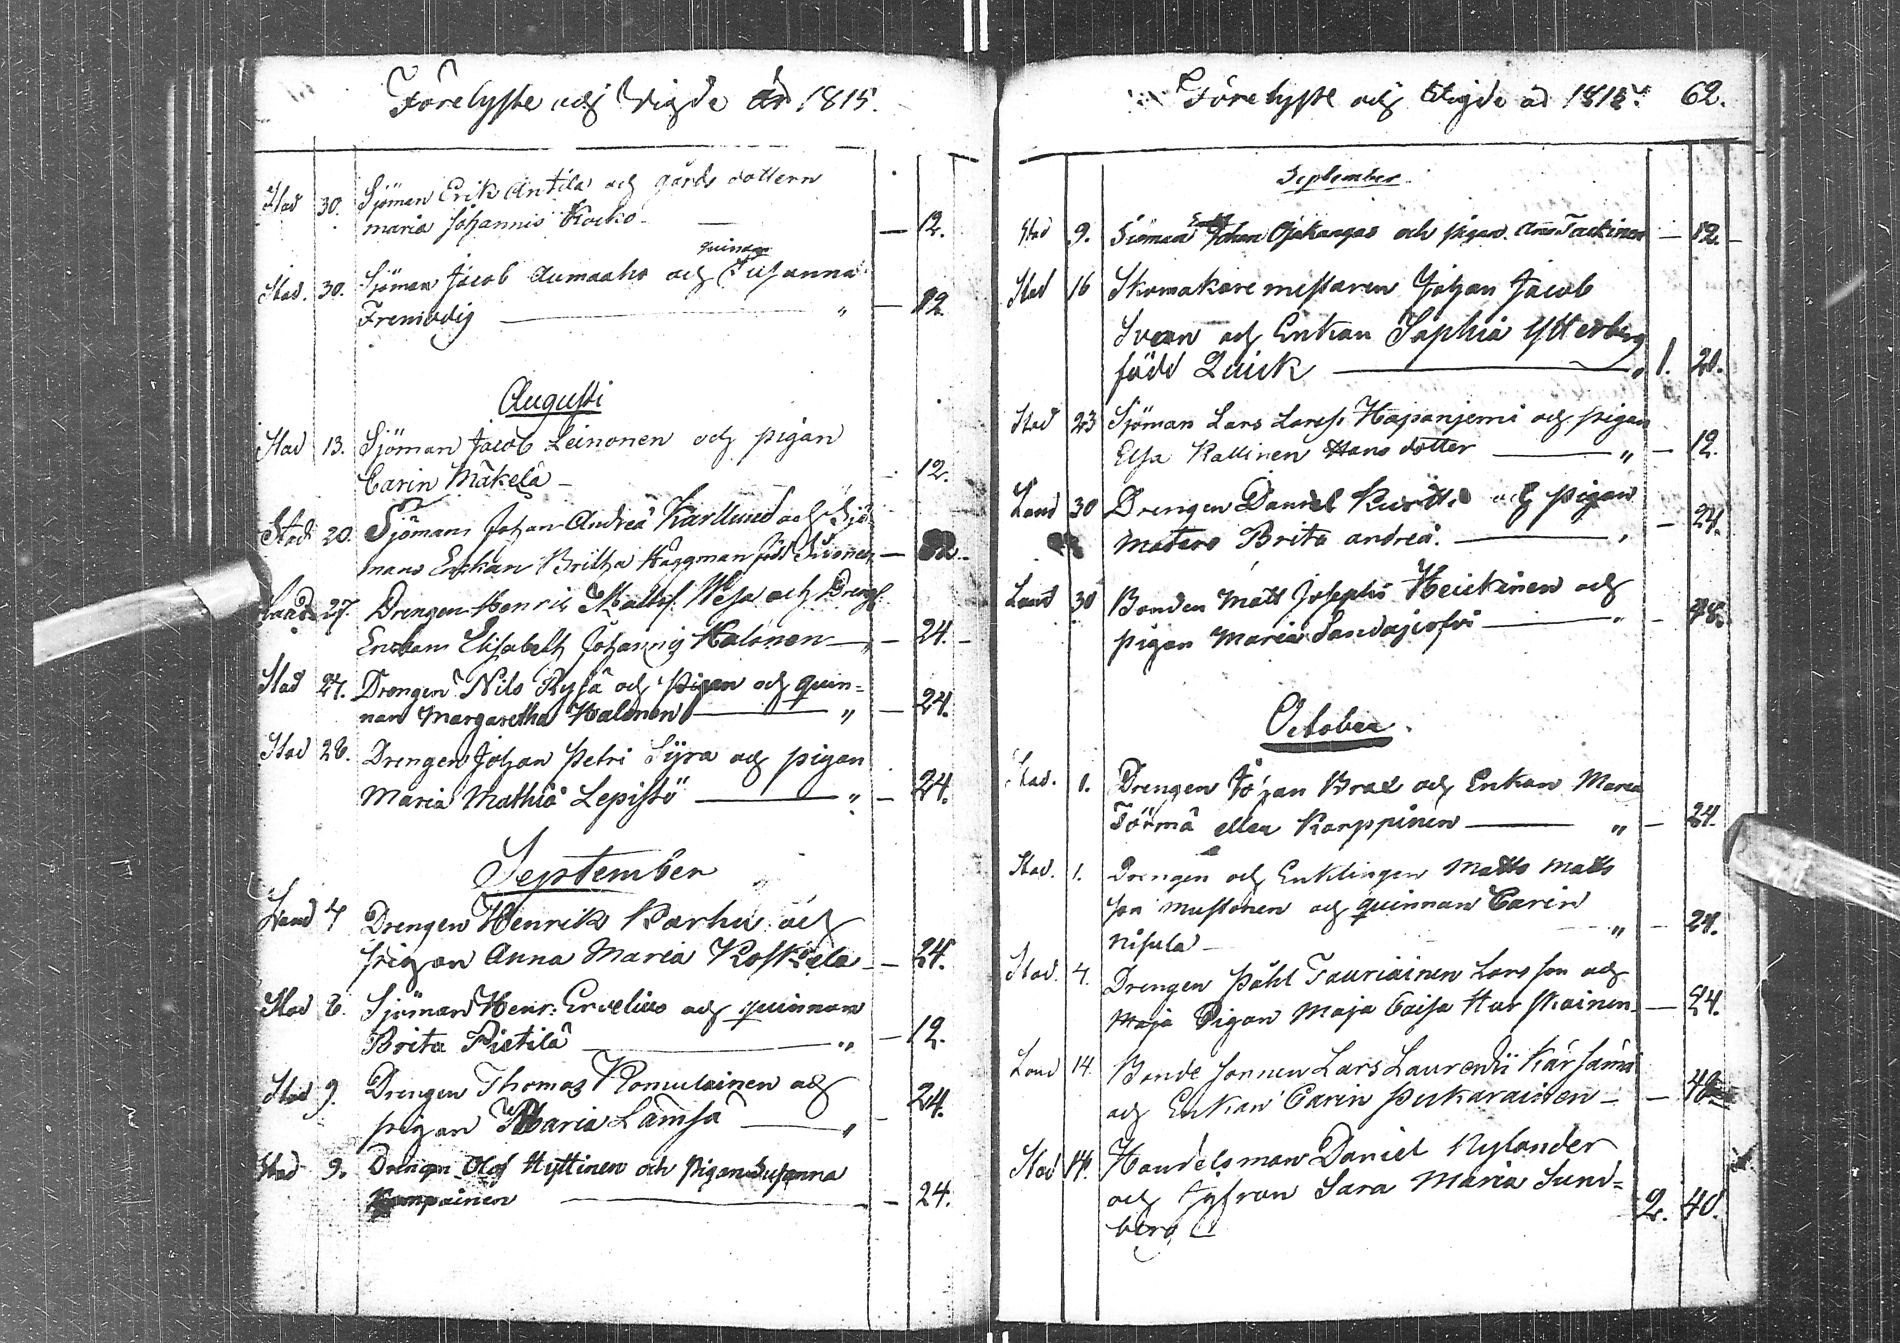 Förelyste och Vigde år 1815.
Stad 30. Sjöman Erik Antila och gårds dottern
maria Johannis Kocko — 12.
quinnan
Stad. 30. Sjöman Jacob Aumaaho och Susanna
Fremodig — " — 12.
Augusti
Stad 13. Sjöman Jacob Leinonen och pigan
Carin Mäkelä — 12.
Stad 20. Sjömans Johan Andreä Karllund och Sjö-
mans Enkan Britha Häggman född —
Land 27. Drengen Henric Matts Wesa och Drengs
Enckan Elisabeth Johannis Halonen — 24.
Stad 27. Drengen Nils Rysä och Pigan och quin=
nan Margaretha Halonen — " — 24.
Stad 28. Drengen Johan Petri Syra och pigan
Maria Mathiä Lepistö — " — 24.
September
Land 4 Drengen Henrik Karhu och
pigan Anna Maria Koskela — 24.
Stad 6. Sjöman Henr: Ervelius och quinnan
Brita Pietilä — " — 12.
Stad 9. Drengen Thomas Romulainen och
pigan Maria Lämsä — " 24.
Stad 9. Drengen Olof Hyttinen och Pigan Susanna
Kamppainen — 24.
Förelyste och Vigde år 1815. 62.
September.
Stad 9. Sjöman Johan Ojakangas och pigan Anna Taskinen — 12.
Stad 16 Skomakare mästaren Johan Jacob
Svan och Enkan Sophia Ytterberg
född Quick — " 1. 20.
Stad 23 Sjöman Lars Larss. Hapanjemi och pigan
Elsa Kallinen Hans dotter — " — 12.
Land 30 Drengen Daniel och pigan
Matero Brita andreä. — 24.
Land 30 Bonden Matt Josephs Heickinen och
pigan Maria Sandajiofvi — " — 48.
October.
Stad. 1. Drengen Johan Brax och Enkan Maria
Törmä eller Karppinen — " — 24.
Stad. 1. Drengen och Enklingen Matts Matts
son Mustonen och quinnan Carin
Nisula — " — 24.
Stad. 4. Drengen Påhl Tauriainen Larsson och
Maja Pigan Maja Caisa Hurskainen — 24.
Land 14. Bonde sonnen Lars Laurentii Kärsämä
och Enkan Carin Pukarainen — 48
Stad 14. Handelsman Daniel Nylander
och Jgfrun Sara Maria Sund=
berg 2. 40.